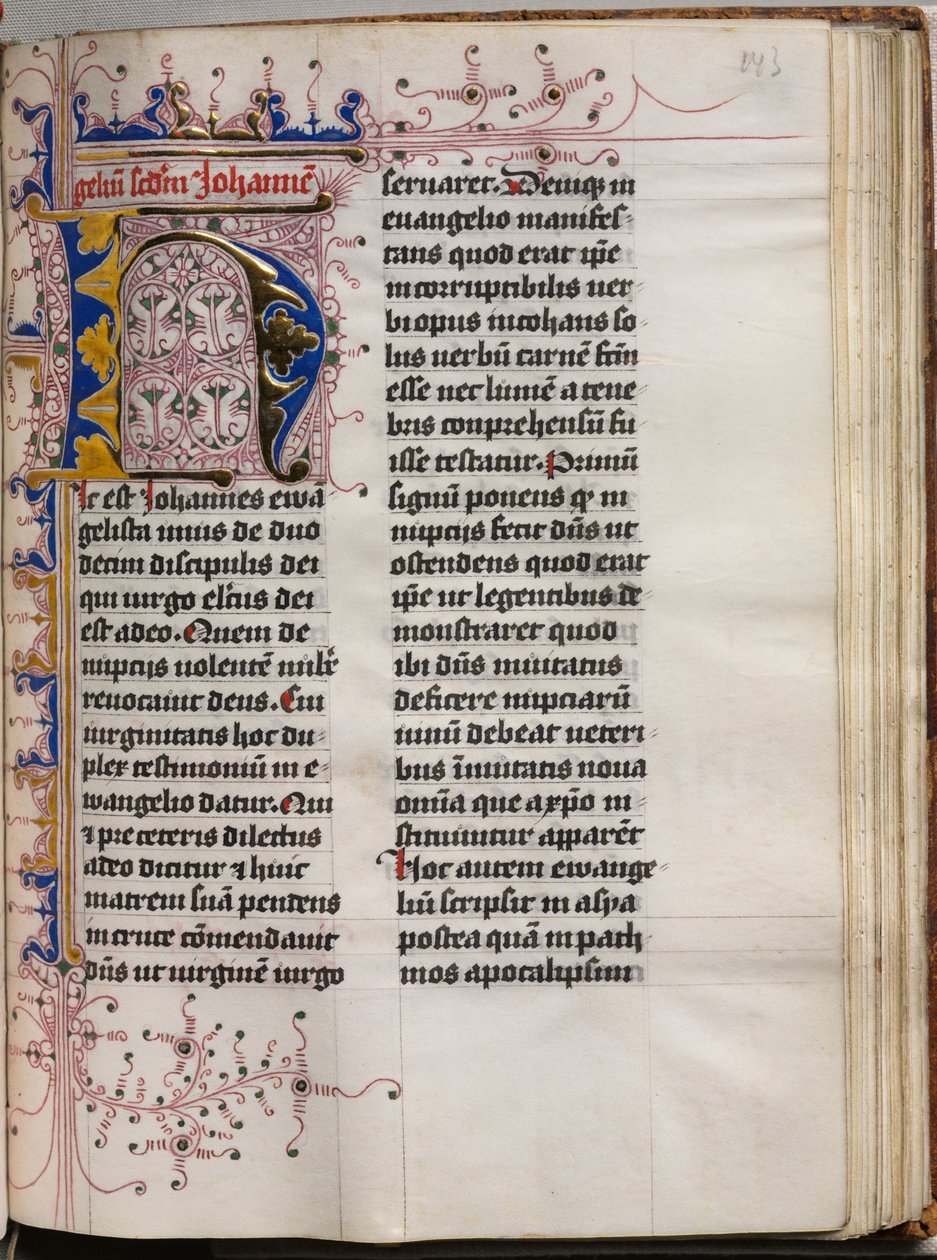 143
geliū scd'm Johannē
H
Ic est Johannes ewā
gelista unus de duo
decim discipulis dei
qui uirgo el'cus dei
est a deo. Quem de
nuptijs uolentē nub'e
reuocauit deus. Cui
uirginitatis hoc du
plex testimoniū in e
wangelio datur. Qui
⁊ pre ceteris dilectus
a deo dicitur ⁊ huic
matrem suā pendens
in cruce cōmendauit
dn̄s ut uirginē uirgo
seruaret. Deniqꝫ in
euangelio manifes
tans quod erat ip̄e
incorruptibilis uer
bi opus incohans so
lus uerbū carnē fc̄m
esse nec lumē a tene
bris conprehensū fu
isse testatur. Primū
signū ponens qꝫ in
nuptijs fecit dn̄s ut
ostendens quod erat
ip̄e ut legentibus de
monstraret quod
ibi dn̄s inuitatus
deficere nuptiarū
uinū debeat ueteri
bus īmutatis noua
omīa que a xp̄o in
stituuntur apparēt
Hoc autem ewange
liū scripsit in asya
postea quā in path
mos apocalipsim